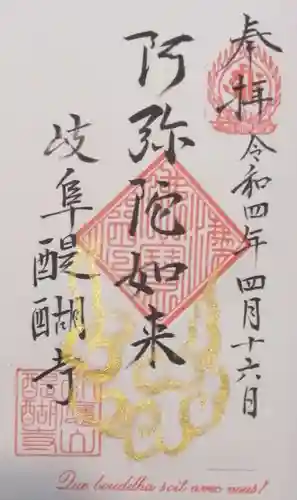 奉拝
令和四年四月十六日
阿弥陀如来
岐阜醍醐寺
Que bouddha soit avec nous!